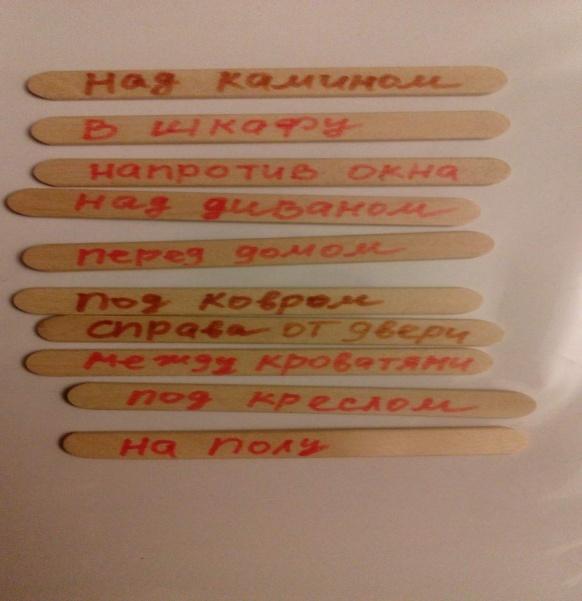 над камином
в шкафу
напротив окна
над диваном
перед домом
под ковром
справа от двери
между кроватями
под креслом
на полу